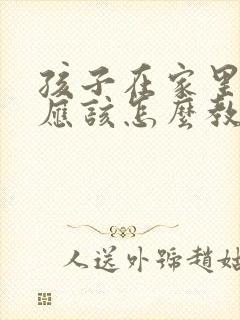 孩子在家里
應該怎麼教
人送外號趙姑